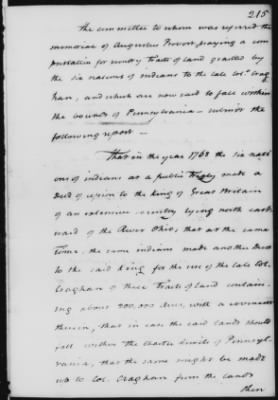 215
The committee to whom was referred the
memorial of Augustus Prevost, praying a com
pensation for sundry tracts of land granted by
the six nations of indians to the late Col. Crog
han, and which are now said to fall within
the bounds of Pennsylvania submit the
following report —
That in the year 1768 the six nati
ons of indians at a public treaty made a
Deed of cession to the king of Great Britain
of an extensive country lying north east
ward of the River Ohio, that at the same
time, the same indians made another Deed
to the said king for the use of the late Col.
Croghan of three tracts of land contain
ing about 200,000 Acres, with a covenant
therein, that in case the said lands should
fall within the charter limits of Pennsyl
vania, that the same might be made
up to Col. Croghan from the lands
then